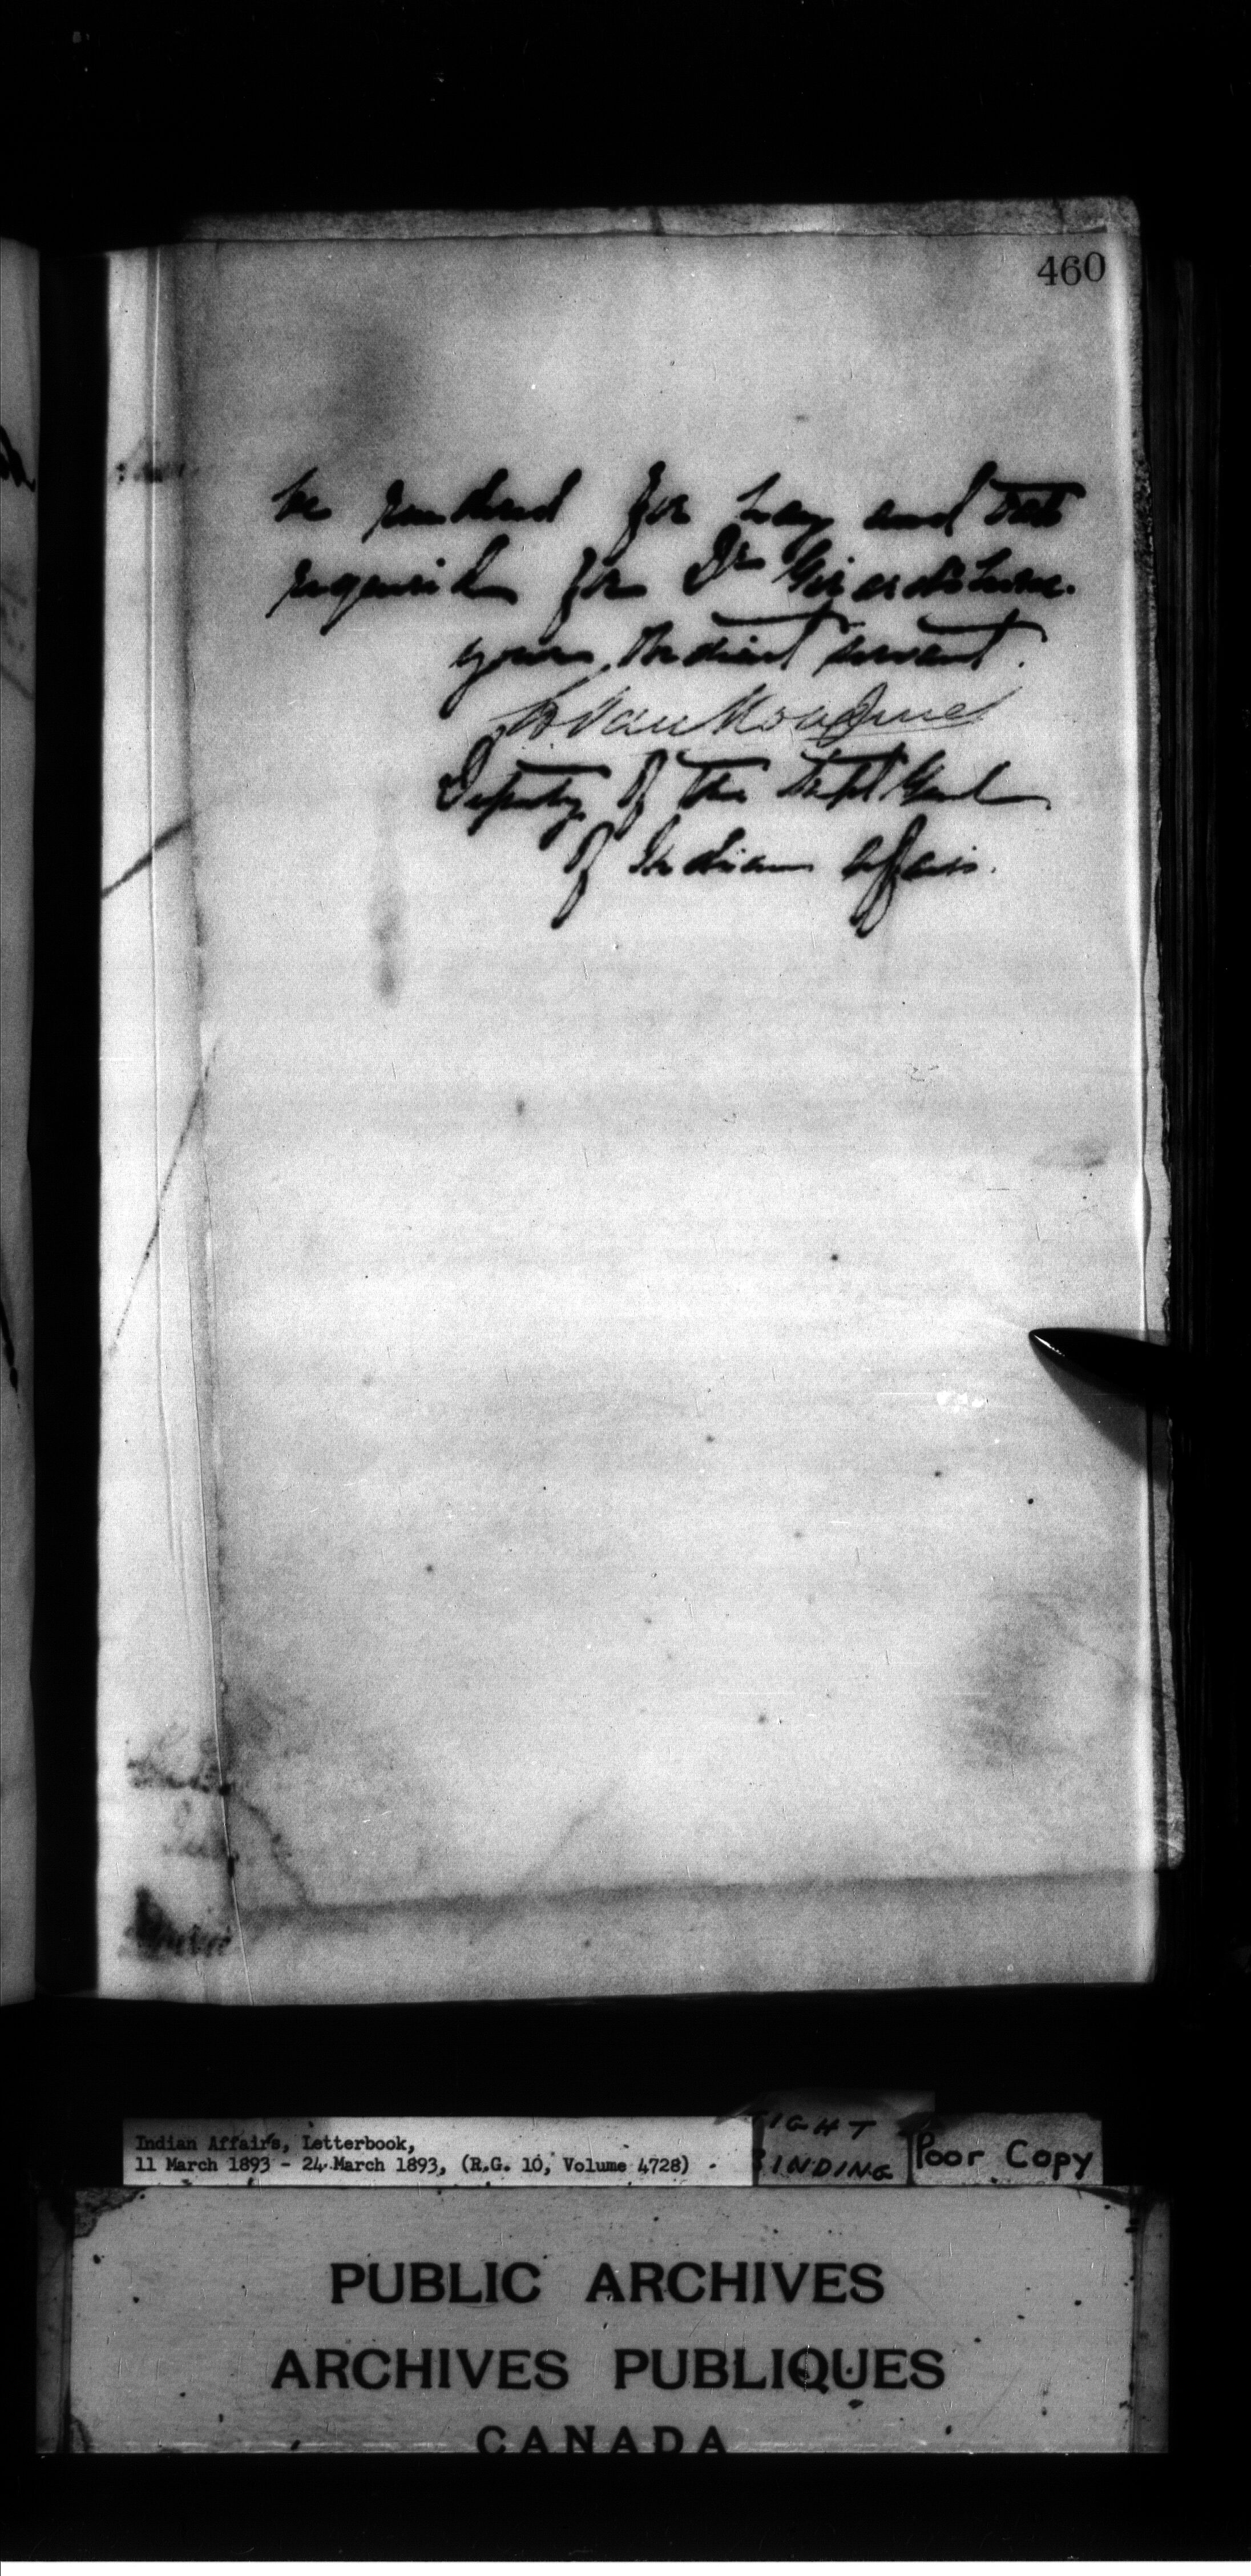 460
be rendered for hay and oats
required for Dr Girard's horse.
your obedient servant.
L Vankoughnet
Deputy of the Supt Genl
of Indian Affairs.
Indian Affairs, Letterbook,
11 March 1893 - 24 March 1893, (R.G. 10, Volume 4728)
TIGHT
BINDING
Poor Copy
PUBLIC ARCHIVES
ARCHIVES PUBLIQUES
CANADA